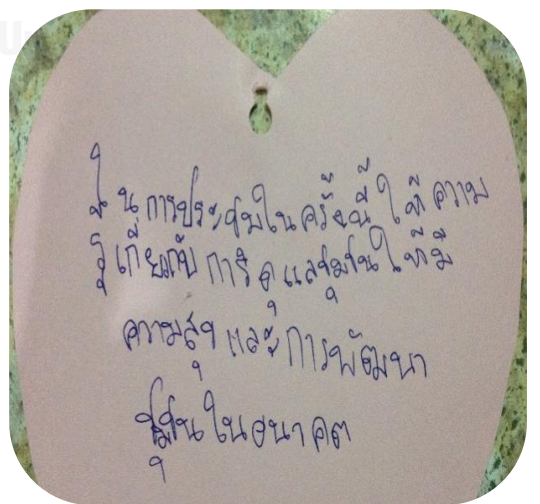 ในการประชุมในครั้งนี้ ให้ความ
รู้เกี่ยวกับ การดูแลชุมชนให้มี
ความสุข และ การพัฒนา
ชุมชนในอนาคต